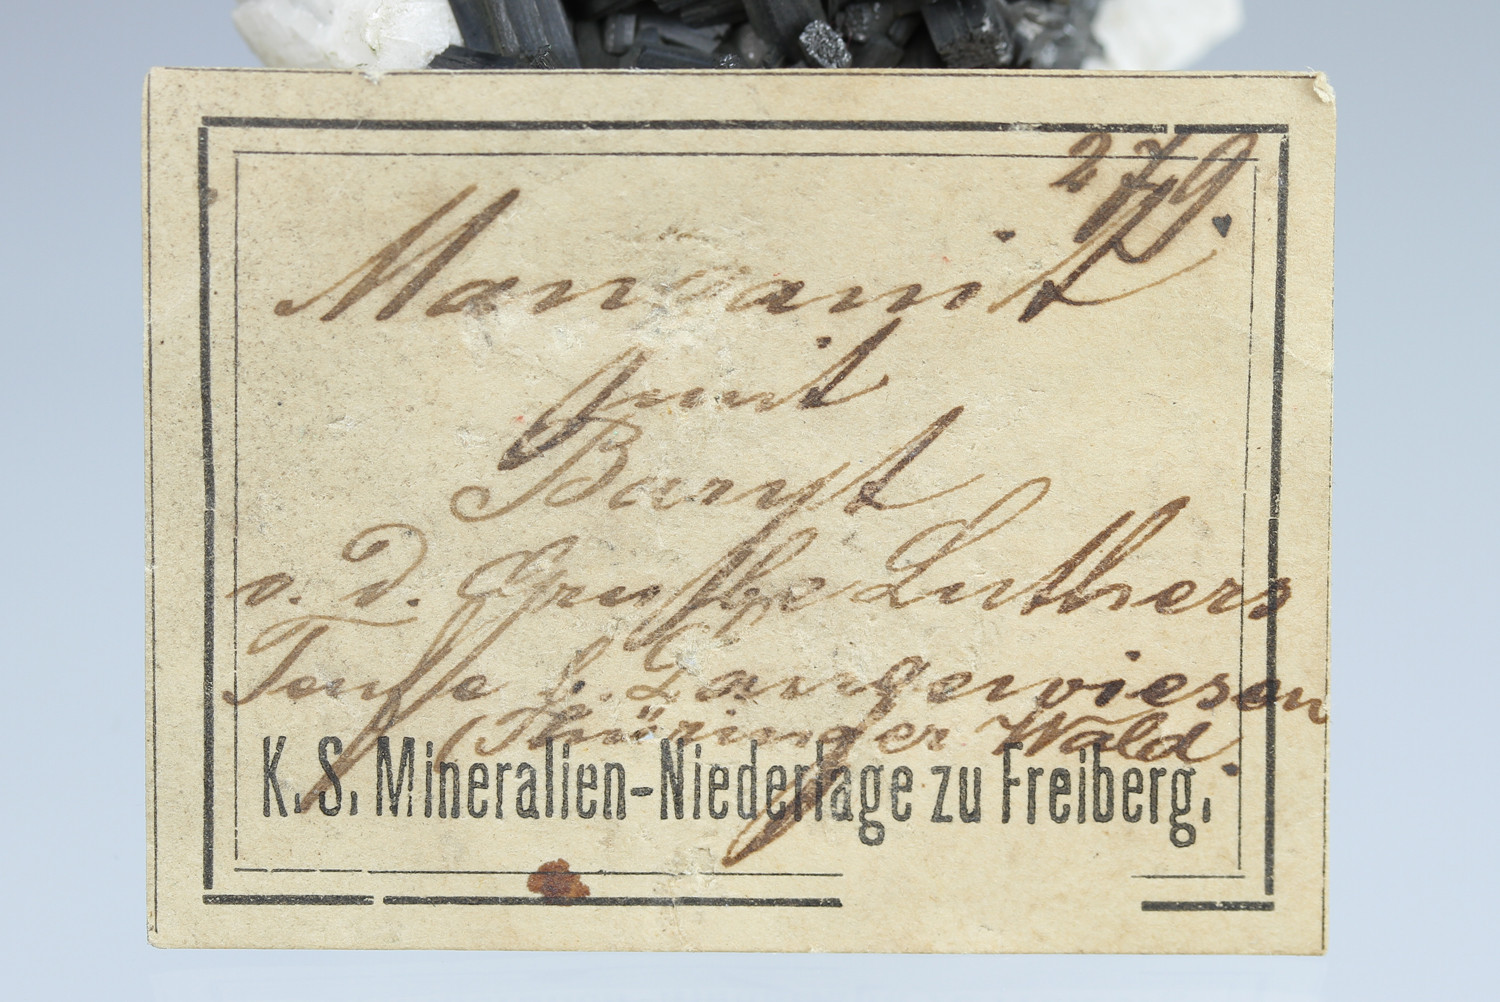 279.
Manganit
mit
Baryt
v. d. Grube Luthers
Teufe b. Langewiesen
(Thüringer Wald.
K. S. Mineralien-Niederlage zu Freiberg.